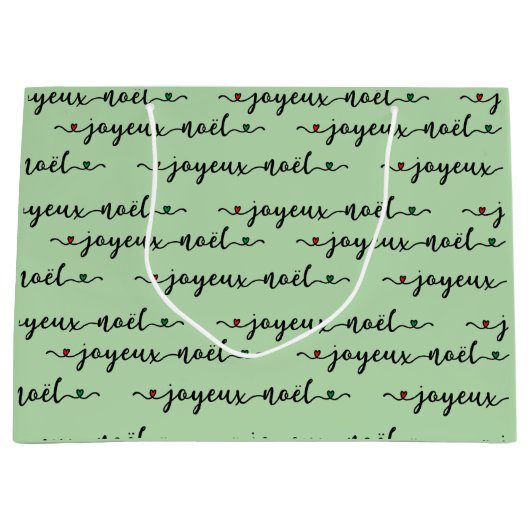 joyeux noël joyeux noël j
joyeux noël joyeux noël
noël joyeux noël joyeux
yeux noël joyeux noël j
joyeux noël joyeux noël
noël joyeux noël joyeux
yeux noël joyeux noël j
joyeux noël joyeux noël
noël joyeux noël joyeux